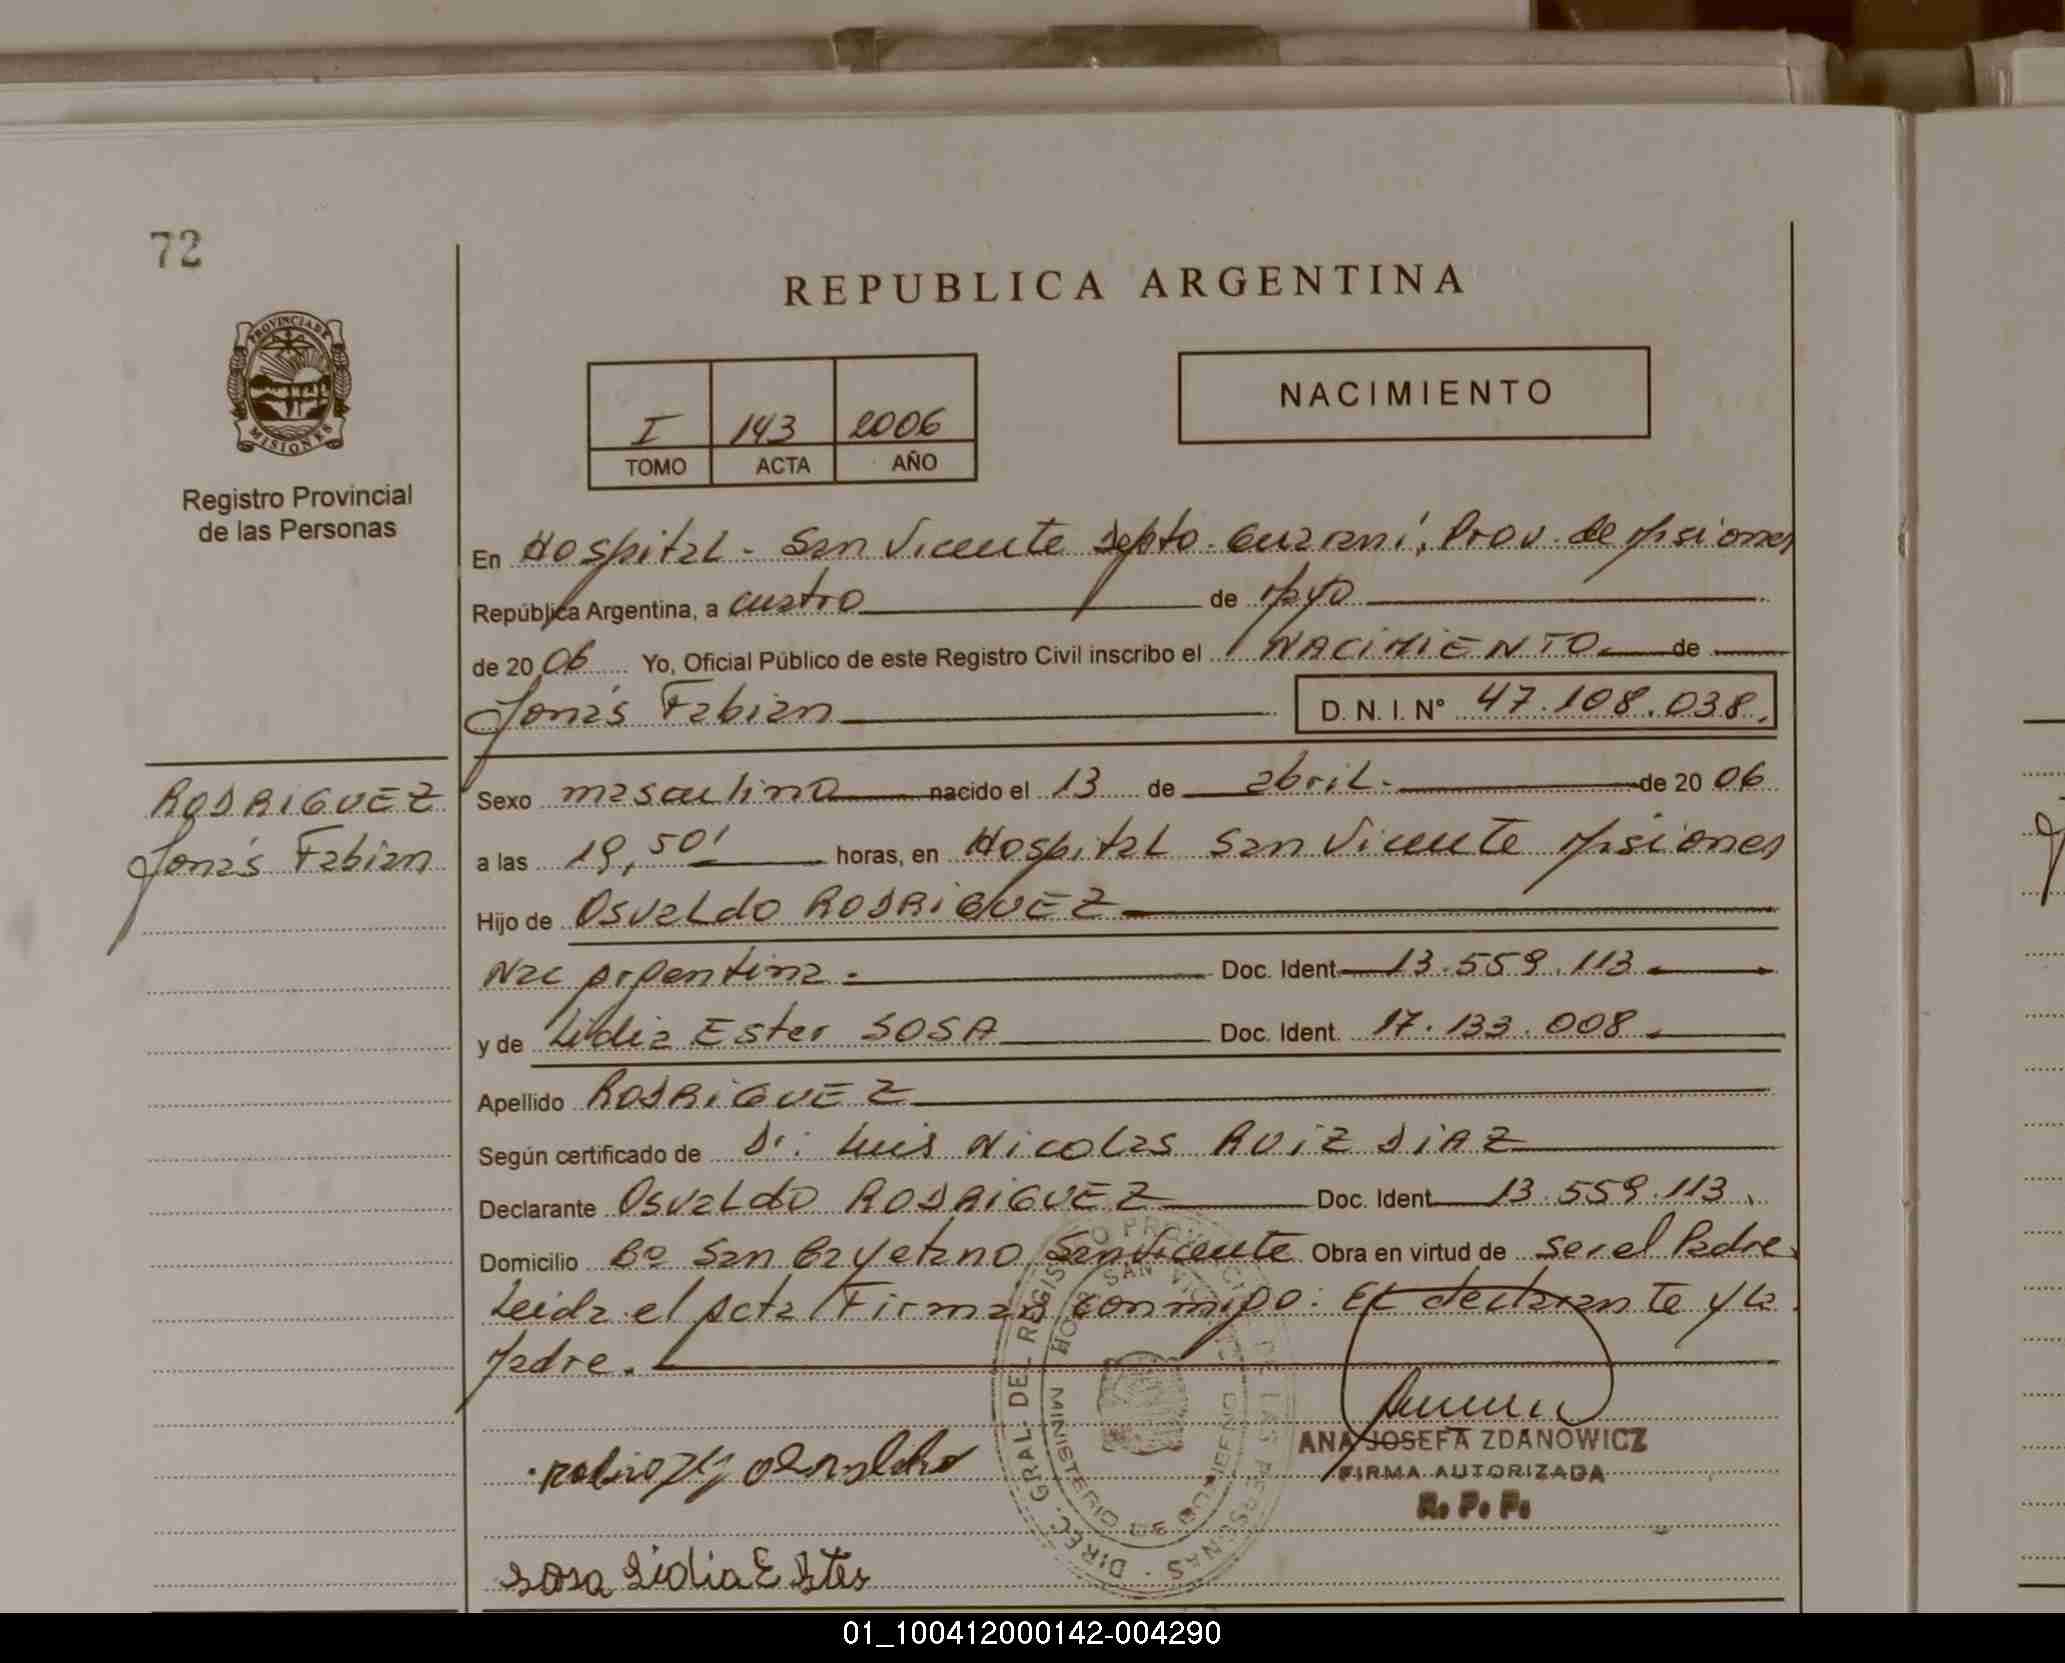 72
REPUBLICA ARGENTINA
PROVINCIA DE
MISIONES
Registro Provincial
de las Personas
I 143 2006
TOMO ACTA AÑO
NACIMIENTO
En Hospital - San Vicente Depto. Guaraní, Prov. de Misiones
República Argentina, a cuatro de Mayo
de 2006 Yo, Oficial Público de este Registro Civil inscribo el NACIMIENTO de
Jonás Fabian D. N. I. N° 47.108.038.
RODRIGUEZ
Jonás Fabian
Sexo masculino nacido el 13 de abril.- de 2006
a las 19,50' horas, en Hospital San Vicente Misiones
Hijo de Osvaldo RODRIGUEZ
Nac Argentina. Doc. Ident 13.559.113.
y de Lidia Ester SOSA Doc. Ident. 17.133.008.
Apellido RODRIGUEZ
Según certificado de Dr: Luis Nicolas RUIZ DIAZ
Declarante Osvaldo RODRIGUEZ Doc. Ident 13.559.113.
Domicilio Bº San Cayetano San Vicente Obra en virtud de ser el Padre.
Leida el Acta Firman conmigo: El declarante y la
Madre.
DIREC. GRAL. DEL REGISTRO PROVINCIAL DE LAS PERSONAS
HOSP. SAN VICENTE
MINISTERIO DE GOBIERNO
ANA JOSEFA ZDANOWICZ
FIRMA AUTORIZADA
R. P. P.
Sosa Lidia Ester
01_100412000142-004290